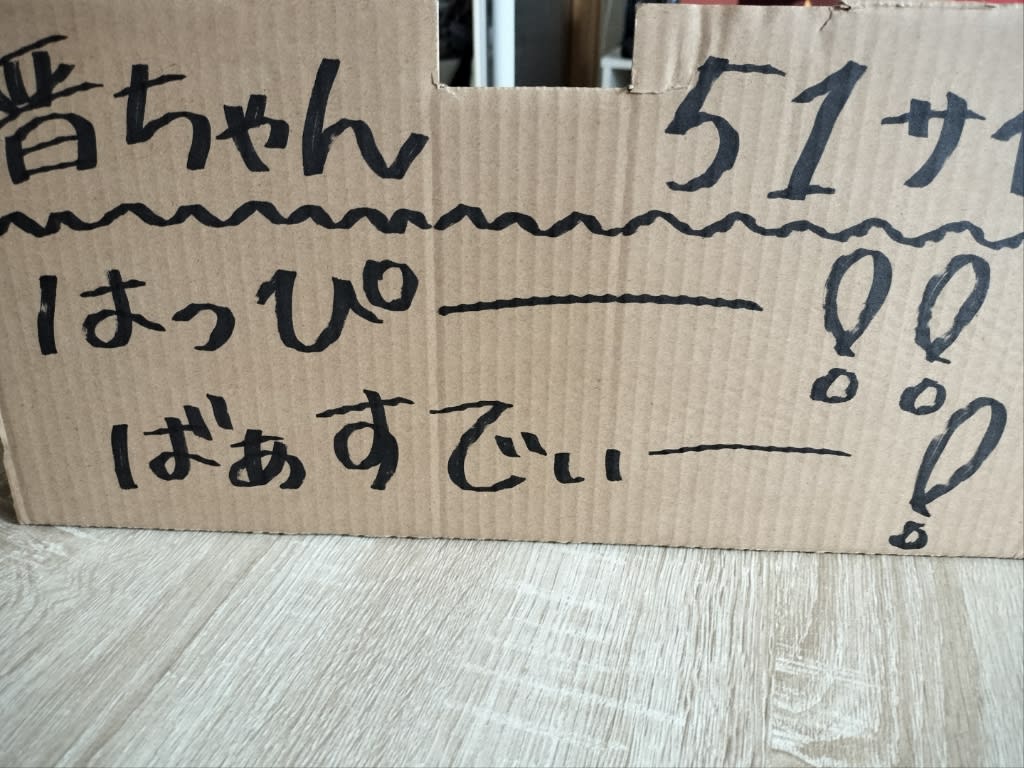 晋ちゃん 51サイ
はっぴー!!
ばぁすでぃー!